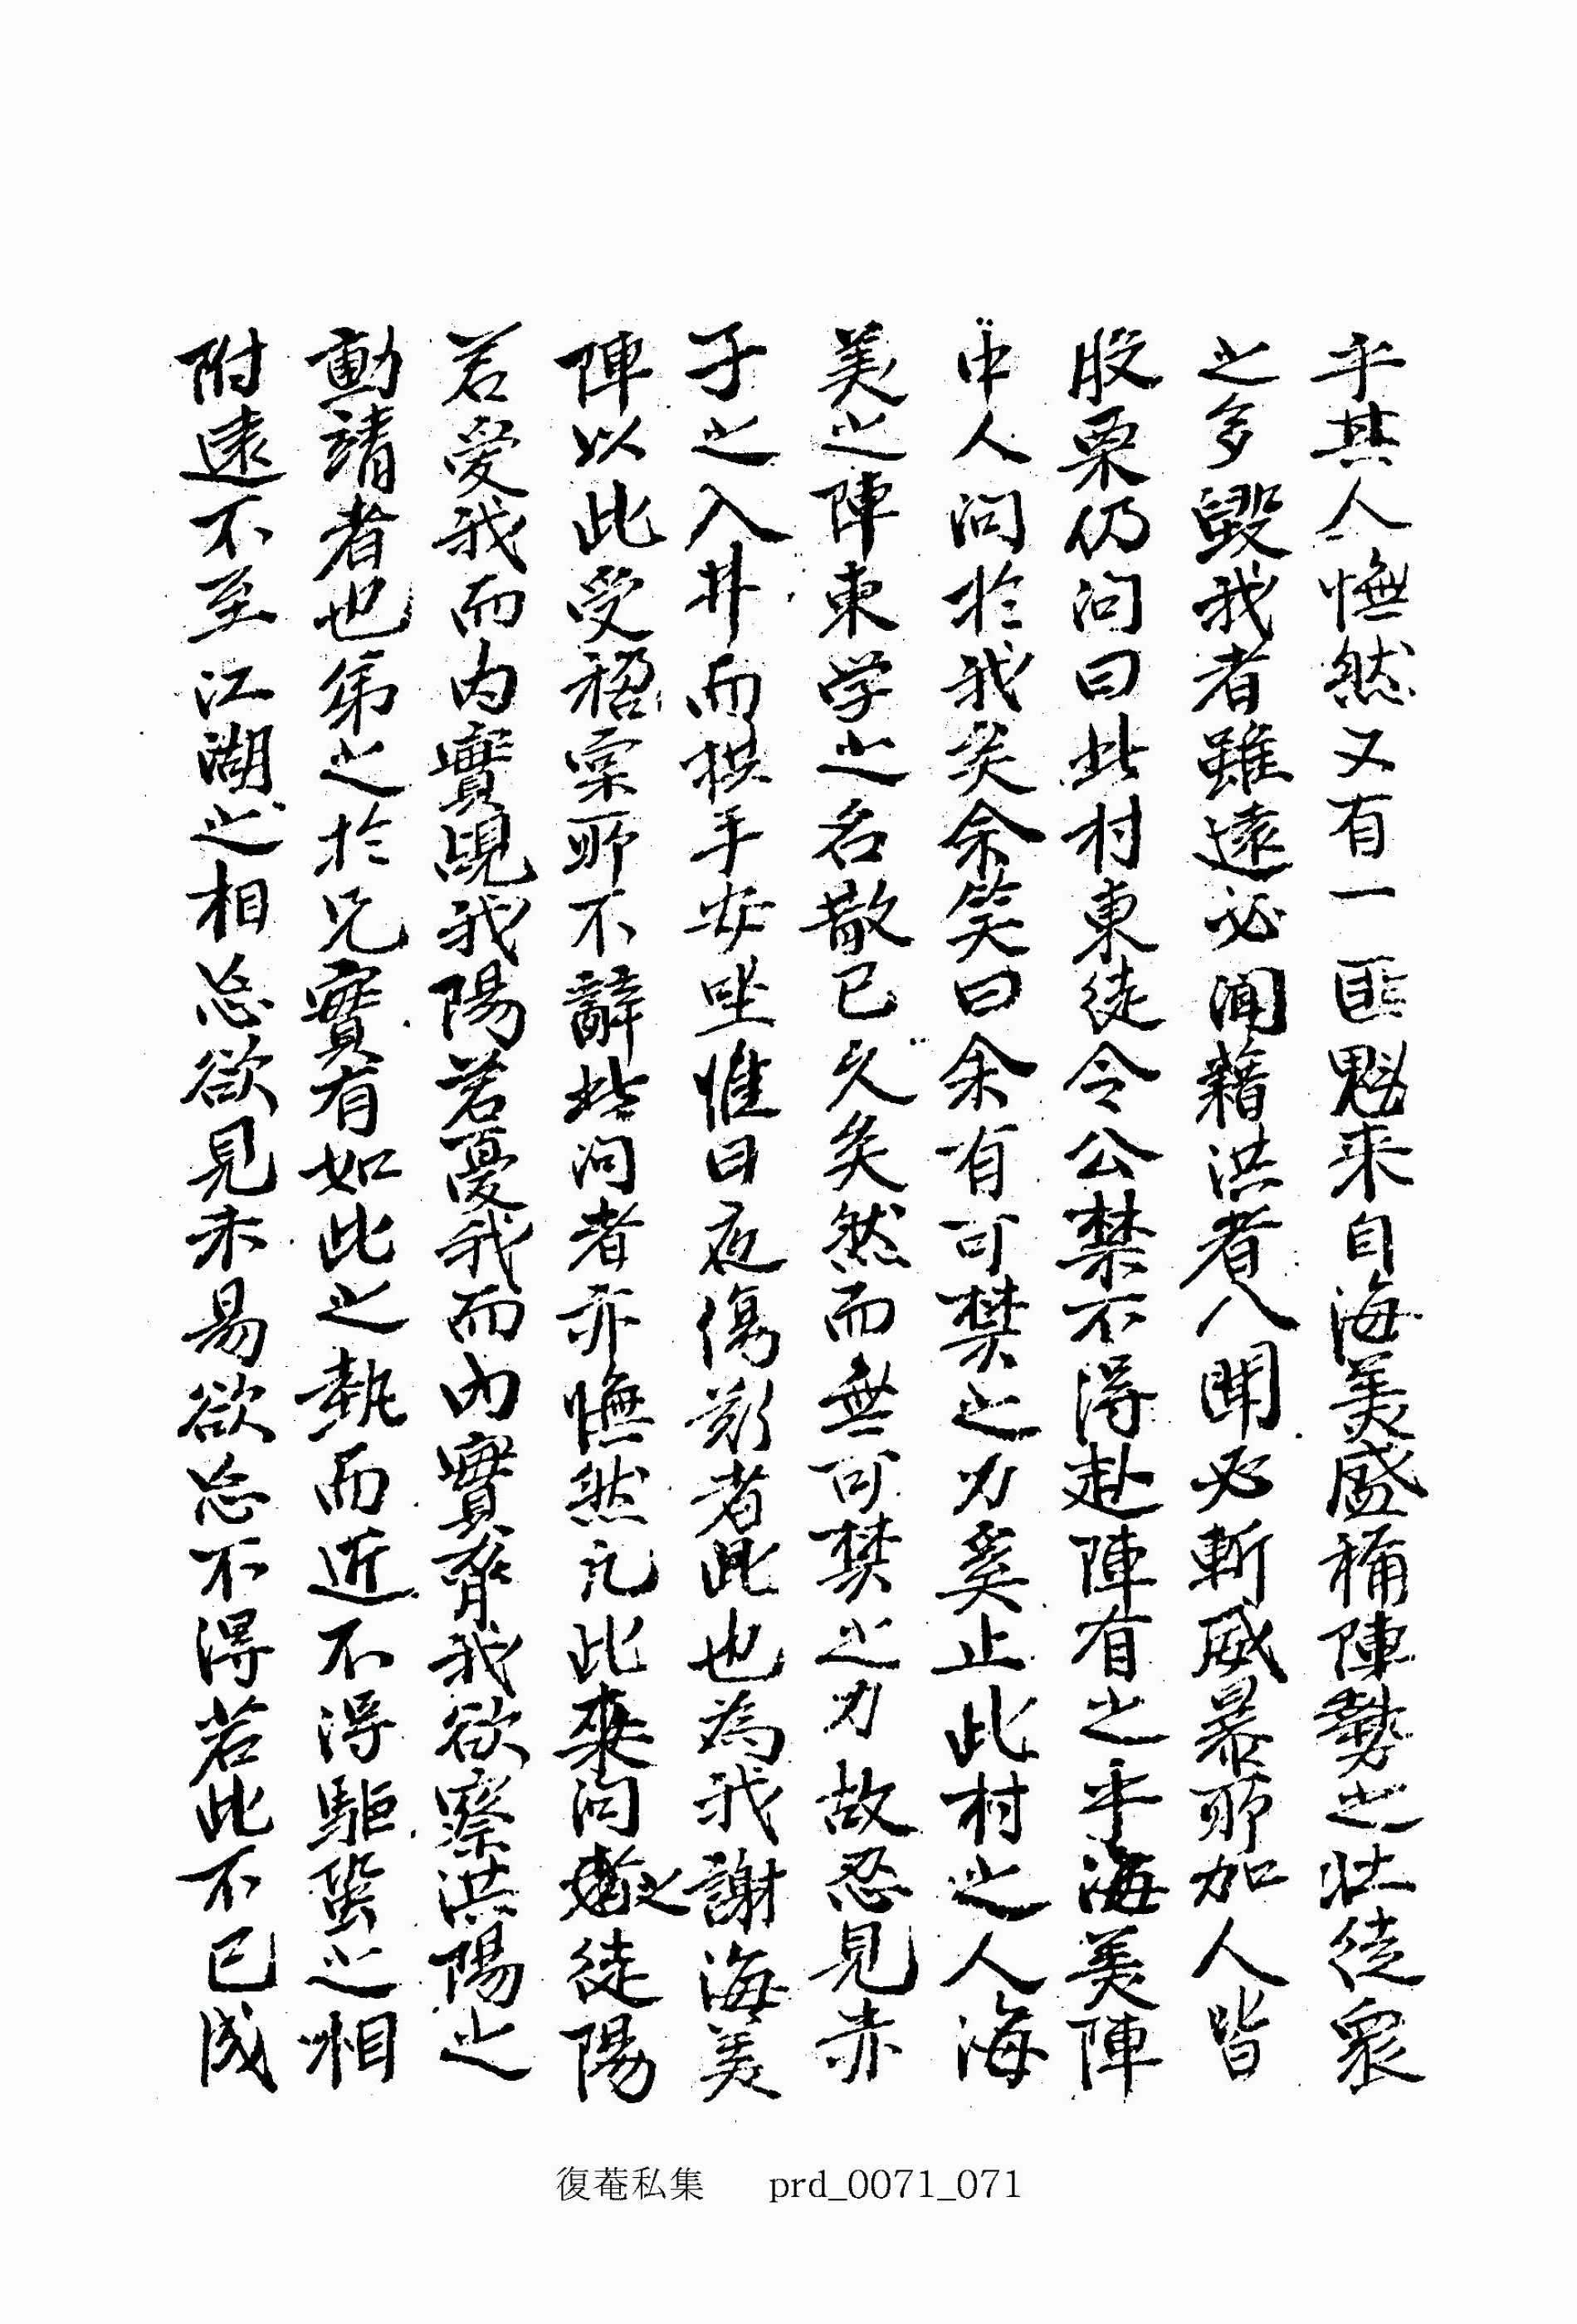 乎其人憮然又有一匪魁来自海美盛稱陣勢之壮徒衆
之多毁我者雖遠必聞藉洪者人聞必斬威暴所加人皆
股栗仍问曰此村東徒令公禁不得赴陣有之乎海美陣
中人问於我矣余笑曰余有可禁之力奚止此村之人海
美之陣東学之名散已久矣然而無可禁之力故忍見赤
子之入井而拱手安坐惟日夜傷歎者此也為我謝海美
陣以此受禍寔所不辭此问者亦憮然凡此來问之徒陽
若愛我而内實覘我陽若憂我而内實脅我欲察洪陽之
動靖者也弟之於兄實有如此之執而近不得駏蛩之相
附遠不至江湖之相忘欲見未易欲忘不得若此不已成
復菴私集 prd_0071_071